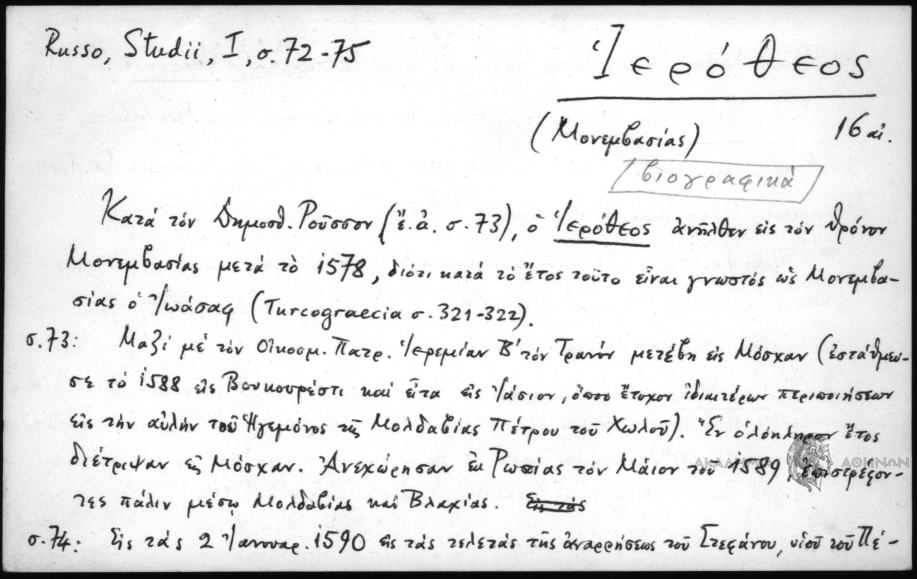 Russo, Studii, I, σ. 72-75
Ἱερόθεος
(Μονεμβασίας) 16 αἰ.
βιογραφικά
Κατά τόν Δημοσθ. Ροῦσσον (ἔ.ἀ. σ. 73), ὁ Ἱερόθεος ἀνῆλθεν εἰς τόν θρόνον
Μονεμβασίας μετά τό 1578, διότι κατά τό ἔτος τοῦτο εἶναι γνωστός ὡς Μονεμβα-
σίας ὁ Ἰωάσαφ (Turcograecia σ. 321-322).
σ. 73: Μαζί μέ τόν Οἰκουμ. Πατρ. Ἱερεμίαν Β' τόν Τρανόν μετέβη εἰς Μόσχαν (ἐστάθμευ-
σε τό 1588 εἰς Βουκουρέστι καί εἶτα εἰς Ἰάσιον, ὅπου ἔτυχον ἰδιαιτέρων περιποιήσεων
εἰς τήν αὐλήν τοῦ Ἡγεμόνος τῆς Μολδαβίας Πέτρου τοῦ Χωλοῦ). Ἐν ὁλόκληρον ἔτος
διέτριψαν εἰς Μόσχαν. Ἀνεχώρησαν ἐκ Ρωσίας τόν Μάϊον τοῦ 1589 ἐπιστρέφον-
τες πάλιν μέσῳ Μολδαβίας καί Βλαχίας. Εἰς τάς
σ. 74: Εἰς τάς 2 Ἰανουαρ. 1590 εἰς τάς τελετάς τῆς ἀναρρήσεως τοῦ Στεφάνου, υἱοῦ τοῦ Πέ-
ΑΚΑΔΗΜΙΑ ΑΘΗΝΩΝ